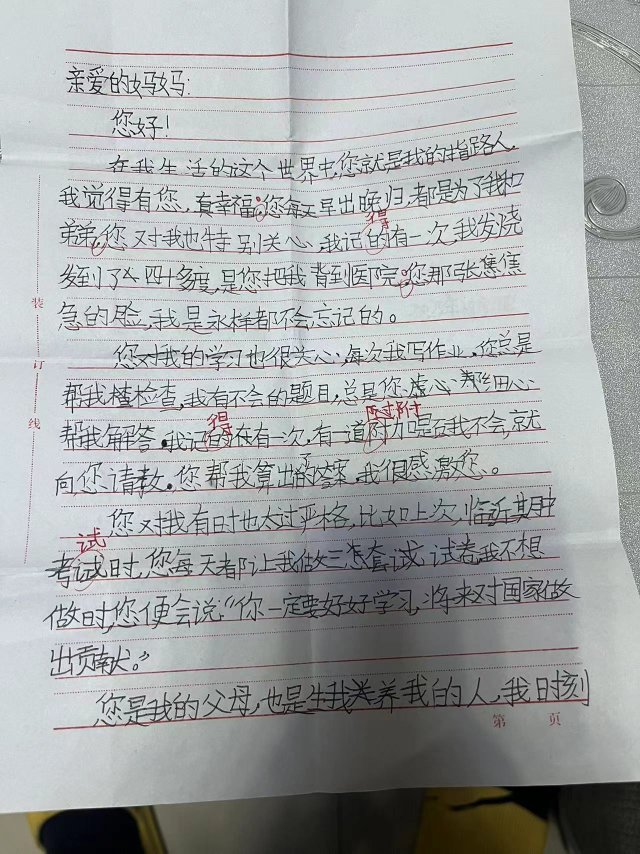 亲爱的妈妈:
您好!
在我生活的这个世界中,您就是我的指路人,
我觉得有您,真幸福。您每天早出晚归,都是为了我和
得
弟弟,您对我也特别关心,我记的有一次,我发烧
发到了四十多度,是您把我背到医院,您那张焦焦
急的脸,我是永样都不会忘记的。
您对我的学习也很关心,每次我写作业,您总是
帮我楂检查,我有不会的题目,总是您虚心细心
得 附
帮我解答。我记的在有一次,有一道题我不会,就
向您请教。您帮我算出了答案,我很感激您。
您对我有时也太过严格,比如上次,临近期中
试
考试时,您每天都让我做三套试卷我不想
做时,您便会说:“你一定要好好学习,将来对国家做
出贡献。”
您是我的父母,也是生我养我的人,我时刻
装
订
线
第 页